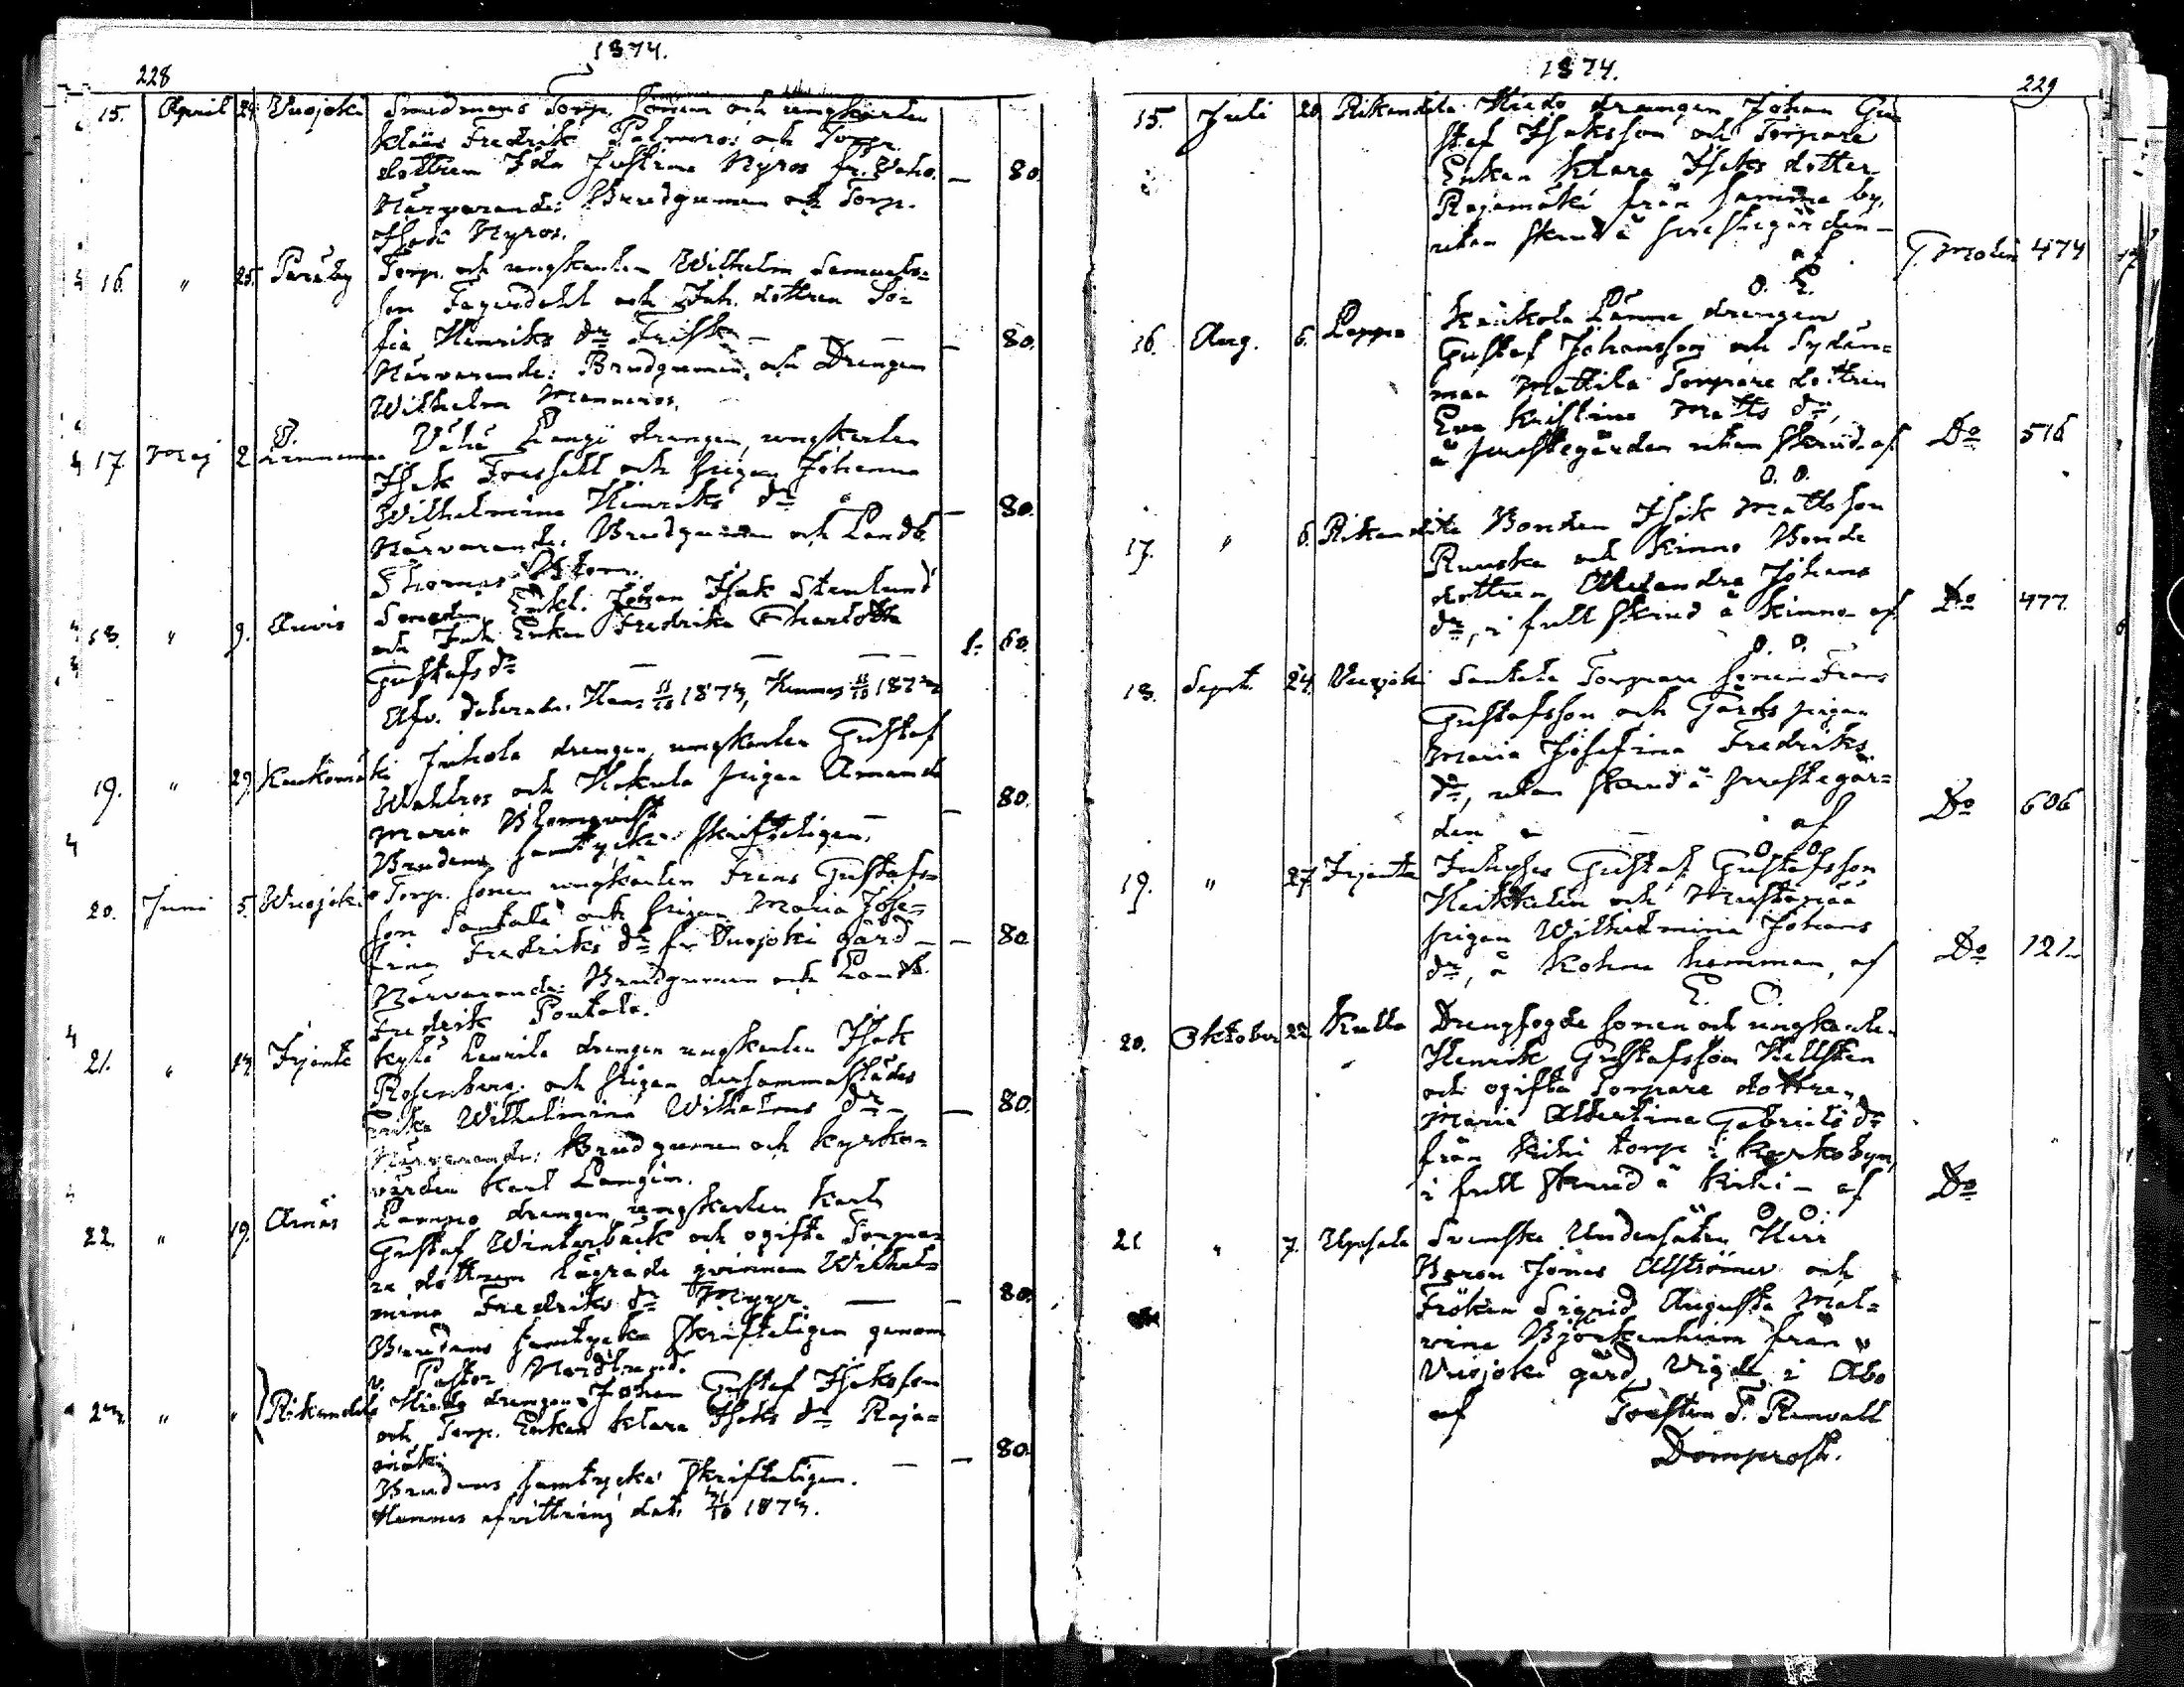 1874.
228
15. April 24. Vuojoki Smedmans Torp. Sonen och ungkarlen
Klaus Fredrik Palmros och Torp.
dottren Ida Justina Nyros fr. Veho. — 80.
Närvarande: Brudgumen och Torp.
Isak Nyros.
16. " 25. Torp. och ungkarlen Wilhelm Samuels=
son Fagerdahl och Inh. dottren So=
fia Henriks dr Frisk — — — 80.
Närvarande: Brudgumen och Drengen
Wilhelm Manneros.
17. Maj 2. Vähä Langi drengen, ungkarlen
Isak Forssell och pigan Johanna
Wilhelmina Henriks dr — 80.
Närvarande: Brudgumen och Landb.
Thomas
18. " 9. Auvis Enkl. Johan Isak Stenlund
och Inh. Enkan Fredrika Charlotta
Gustafs dr — — — 1. 60.
Afv. daterade. Hans 11/10 1873, Hennes 11/10 1873
19. " 29. Kaukomäki Juhola drengen, ungkarlen Gustaf
Wahlros och Kokula pigan Amanda
Maria Blomqvist — — 80.
Brudens samtycke skrifteligen.
20. Juni 5. Wuojoki Torp. sonen ungkarlen Frans Gustafs=
son Santala och pigan Maria Jose=
fina Fredriks dr fr Vuojoki gård — — 80.
Närvarande: Brudgumen och Landb.
Fredrik Pontala.
21. " 13. Irjante Laurila drengen ungkarlen Isak
Rosenberg och pigan dersammastädes
Wilhelmina Wilhelms dr — — 80.
Närvarande: Brudgumen och kyrko=
värden Karl Langin.
22. " 19. Anäs Lamppo drengen ungkarlen Karl
Gustaf Winterbäck och ogifta Torpa=
re dottren lägrade qvinnan Wilhel=
mina Fredriks dr Myyr. — — 80.
Brudens samtycke skrifteligen genom
v. Pastor Nordlund.
23. " " Rikandila Hiedo drengen Johan Gustaf Isaksson
och Torp. Enkan Klara Isaks dr Raja=
mäki — — — 80.
Brudens samtycke skrifteligen.
Hennes afvittring dat. 1873.
1874.
229
15. Juli 20. Rikandila Hiedo drengen Johan Gu
staf Isaksson och Torpare
Enkan Klara Isaks dotter
Rajamäki från samma by,
utan skrud å prestegården —
af G. Molin 474
O. E.
16. Aug. 6. Lappo Kaukola Länne drengen
Gustaf Johansson och Sydän=
maa Mattila Torpare dottren
Eva Kristina Matts dr,
å prestegården utan skrud af Do 516
O. O.
17. " 6. Rikandila Bonden Isak Mattsson
Ruuska och Kinno Bonde
dottren Alexandra Johans
dr, i full skrud å Kinno af Do 477.
O. O.
18. Sept. 24. Vuojoki Santala Torpare sonen Frans
Gustafsson och Gårds pigan
Maria Josefina Fredriks
dr, utan skrud å prestegår=
den — — af Do 606
O. O.
19. " 27. Irjante Inhyses Gustaf Gustafsson
Heikkelin och Mustapää
pigan Wilhelmina Johans
dr, å Kohna hemman, af Do 121
E. O.
20. Oktober 22. Kulla Drengfogde sonen och ungkarlen
Henrik Gustafsson Hellsten
och ogifta Torpare dottren
Maria Albertina Gabriels dr
från Kihi torp i Kyrkobyn,
i full skrud å Kihi — af Do
O. O.
21 " 7. Upsala Svenske Undersåten Herr
Baron Jonas Alströmer och
Fröken Sigrid Augusta Mal=
vina Björkenheim från
Vuojoki gård Vigde i Åbo
af Torsten T. Renvall
Domprost.